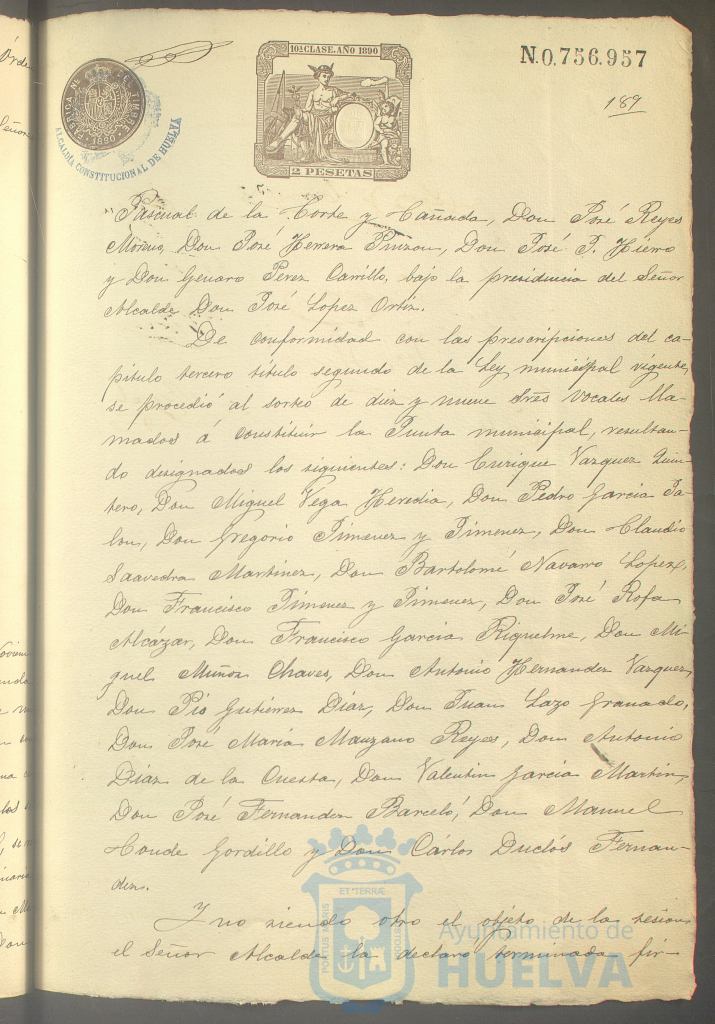 10ª CLASE. AÑO 1890
N.0.756.957
189
2 PESETAS
ALCALDÍA CONSTITUCIONAL DE HUELVA
1890
Pascual de la Corte y Cañada, Don José Reyes
Moreno, Don José Herrera Pinzon, Don José P. Hierro
y Don Genaro Perez Carrillo, bajo la presidencia del Señor
Alcalde Don José Lopez Ortiz.
De conformidad con las prescripciones del ca-
pítulo tercero título segundo de la Ley municipal vigente,
se procedió al sorteo de diez y nueve Sres Vocales lla-
mados á constituir la Junta municipal, resultan-
do designados los siguientes: Don Enrique Vazquez Quin-
tero, Don Miguel Vega Heredia, Don Pedro Garcia Ja-
lon, Don Gregorio Jimenez y Jimenez, Don Claudio
Saavedra Martinez, Don Bartolomé Navarro Lopez,
Don Francisco Jimenez y Jimenez, Don José Rofa
Alcázar, Don Francisco Garcia Riquelme, Don Mi-
guel Muñoz Chaves, Don Antonio Hernandez Vazquez,
Don Pio Gutiérrez Diaz, Don Juan Lazo Granado,
Don José María Manzano Reyes, Don Antonio
Diaz de la Cuesta, Don Valentin Garcia Martin,
Don José Fernandez Barceló, Don Manuel
Conde Gordillo y Don Cárlos Duclós Fernan-
dez.
Y no siendo otro el objeto de la sesion
el Señor Alcalde la declaró terminada fir-
PORTUS MARIS ET TERRÆ CUSTODIA
Ayuntamiento de
HUELVA